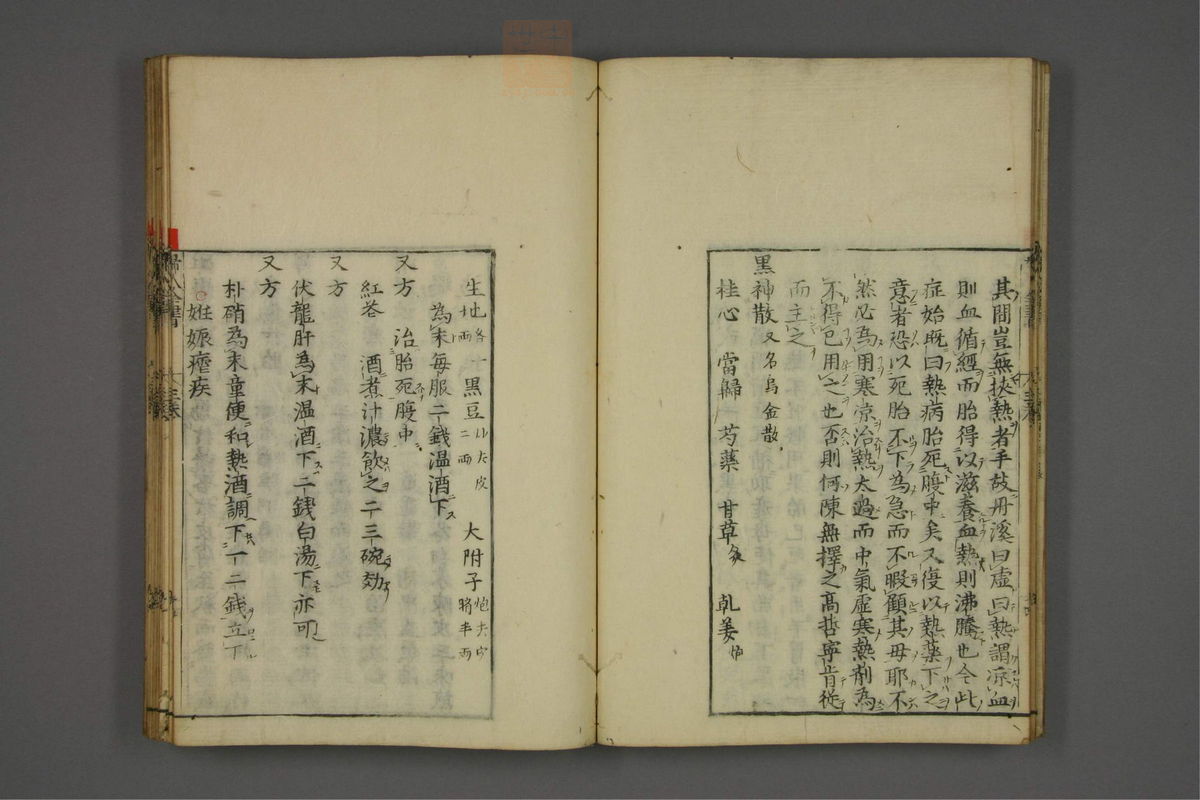 其間豈無挾熱者乎故丹溪曰虛曰熱謂凉血
則血循經而胎得以滋養血熱則沸騰也今此
症始既曰熱病胎死腹中矣又復以熱薬下之
意者恐以死胎不下為急而不暇顧其母耶不
然必為用寒凉治熱太過而中氣虛寒熱劑為
不得已用之也否則何陳無擇之高哲寧肯從
而主之
黒神散 又名烏金散
桂心 當歸 芍藥 甘草灸 乹姜炮
生地 各一両 黒豆 二両 大附子 炮去 半両
為末毎服二錢温酒下
又方 治胎死腹中
紅花 酒煮汁濃飲之二三碗効
又方
伏龍肝為末温酒下二錢白湯下亦可
又方
朴硝為末童便和熱酒調下一二錢立下
○姙娠瘧疾